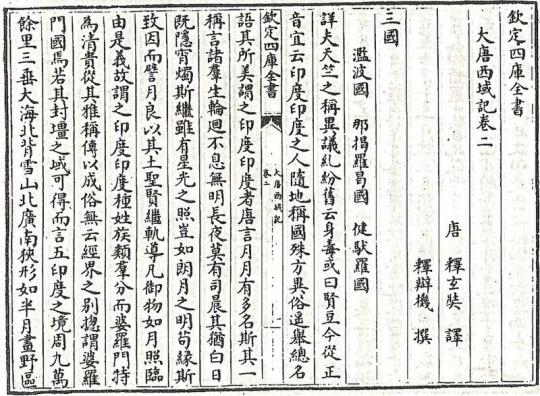 欽定四庫全書
大唐西域記卷二
唐 釋玄奘 譯
釋辯機 撰
三國
濫波國 那揭羅曷國 健馱羅國
詳夫天竺之稱異議糺紛舊云身毒或曰賢豆今從正
音宜云印度印度之人隨地稱國殊方異俗遥舉總名
欽定四庫全書
大唐西域記
卷二
一
語其所美謂之印度印度者唐言月月有多名斯其一
稱言諸羣生輪廻不息無明長夜莫有司晨其猶白日
既隱宵燭斯繼雖有星光之照豈如朗月之明苟緣斯
致因而譬月良以其土聖賢繼軌導凡御物如月照臨
由是義故謂之印度印度種姓族類羣分而婆羅門特
為清貴從其雅稱傳以成俗無云經界之別揔謂婆羅
門國焉若其封壃之域可得而言五印度之境周九萬
餘里三垂大海北背雪山北廣南狹形如半月畫野區